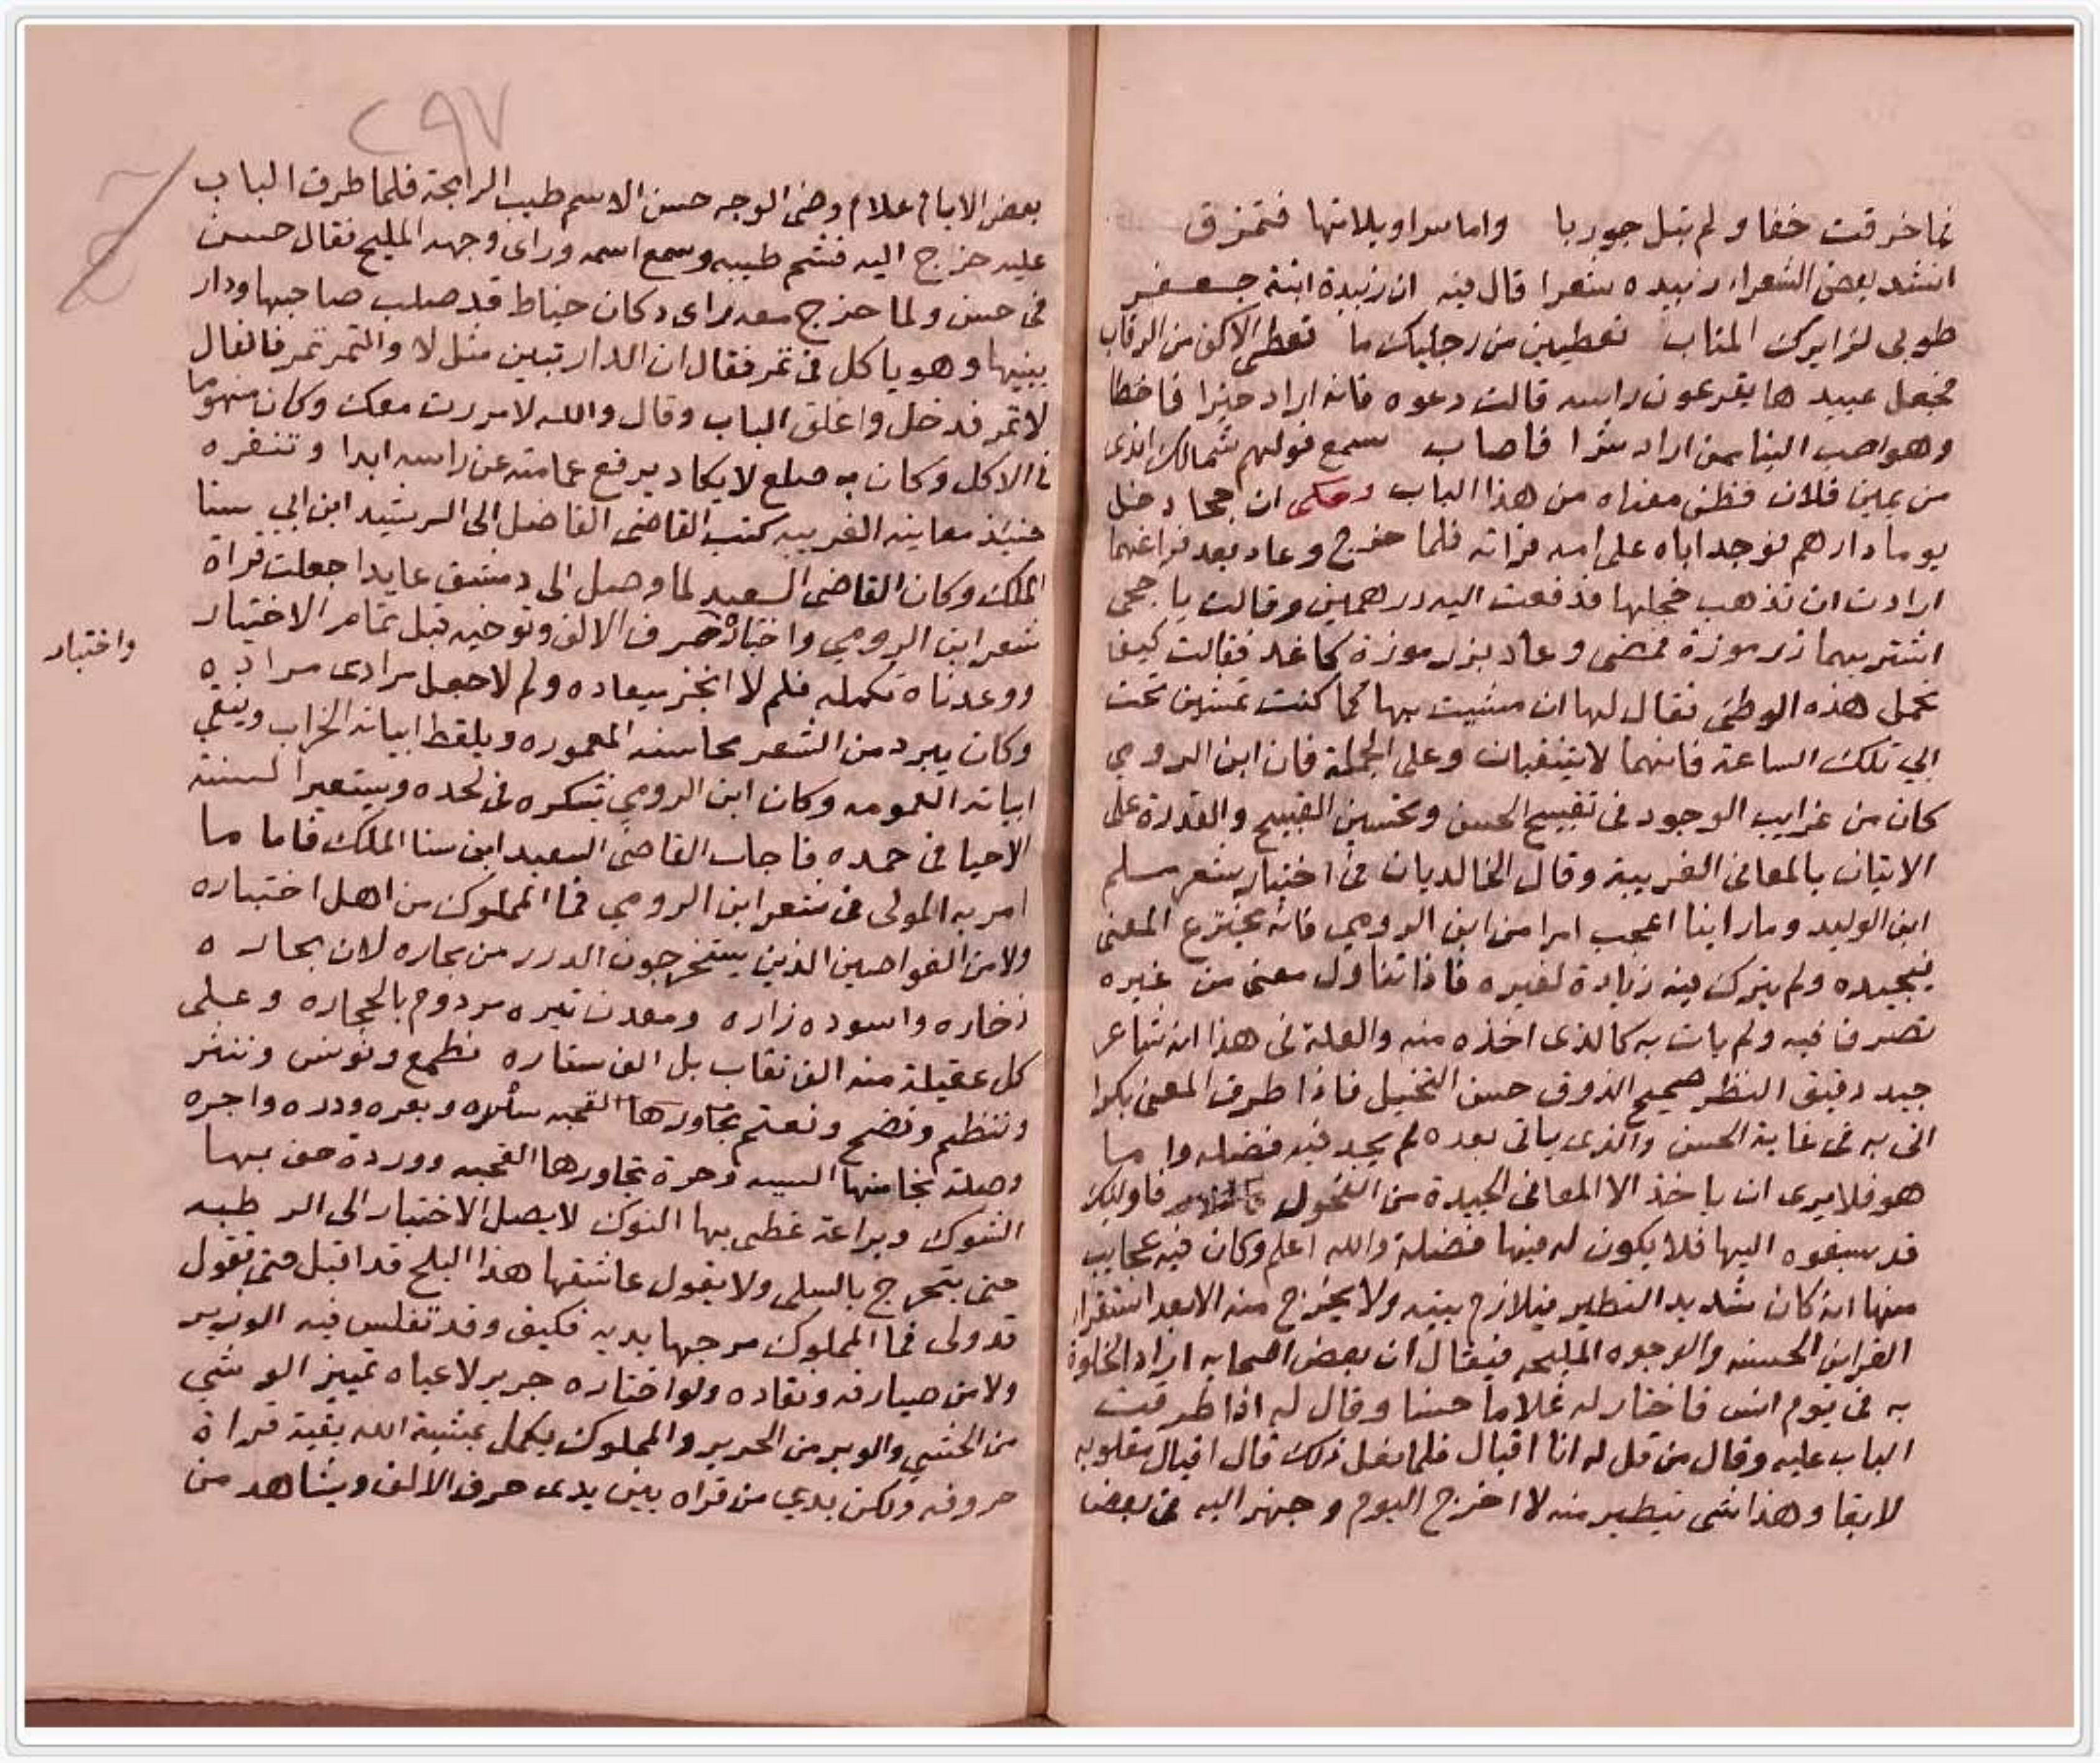 فما خرقت خفا ولم تبل جوربا واما سراويلاتها فتمزق
انشد بعض الشعراء زبيده شعرا قال فيه ان زبيدة ابنة جعفر
طوبى لزايرك المثاب تعطين من رجليك ما تعطى الاكف من الرقاب
فجعل عبيدها يقرعون راسه قالت دعوه فانه اراد خيرا فاخطا
وهو احب الينا ممن اراد شرا فاصاب سمع قولهم شمالك اندى
من يمين فلان فظن معناه من هذا الباب وحكى ان جحا دخل
يوما دارهم فوجد اباه على امه فلما خرج وعاد بعد فراغهما
ارادت ان تذهب خجلها فدفعت اليه درهمين وقالت يا جحى
اشتر بهما زرموزة فمضى وعاد بزرموزة كاغد فقالت كيف
تحمل هذه الوطئ فقال لها ان مشيت بها كما كنت تمشين تحت
ابي تلك الساعة فانهما لا يتثقبان وعلى الجملة فان ابن الرومي
كان من غرايب الوجود فى تقبيح الحسن وتحسين القبيح والقدرة على
الاتيان بالمعانى الغريبة وقال الخالديان فى اختيار شعر مسلم
ابن الوليد وما راينا اعجب امرا من ابن الرومي فانه يخترع المعنى
فيجيده ولم يترك فيه زيادة لغيره فاذا تناول معنى من غيره
تصرف فيه ولم يات به كالذى اخذه منه والعلة فى هذا انه شاعر
جيد دقيق النظر صحيح الذوق حسن التخيل فاذا طرق المعنى بكرا
اتى به فى غاية الحسن والذى ياتى بعده لم يجد فيه فضله واما
هو فلا يرى ان ياخذ الا المعانى الجيدة من الفحول فاوليك
قد سبقوه اليها فلا يكون له فيها فضلة والله اعلم وكان فيه عجايب
منها انه كان شديد التطير فيلازم بيته ولا يخرج منه الا بعد استقرار
القراين الحسنه والوجوه المليحه فيقال ان بعض اصحابه اراد الخلوة
به فى يوم انس فاختار له غلاما حسنا وقال له اذا طرقت
الباب عليه وقال من قل له انا اقبال فلما فعل ذلك قال اقبال مقلوبه
لا بقا وهذا شى يتطير منه لا اخرج اليوم وجهز اليه فى بعض
٢٩٧
بعض الايام غلام وضى الوجه حسن الاسم طيب الرايحة فلما طرق الباب
عليه خرج اليه فشم طيبه وسمع اسمه وراى وجهه المليح فقال حسن
فى حسن ولما خرج معه راى دكان خياط قد صلب صاحبها ودار
بينها وهو ياكل فى تمر فقال ان الدار تبين مثل لا والتمر تمر فالفال
لا تمر فدخل واغلق الباب وقال والله لا مررت معك وكان منهوما
فى الاكل وكان به صلع لا يكاد يرفع عمامته عن راسه ابدا
كتب القاضى الفاضل الى الرشيد ابن ابي سنا
الملك وكان القاضى السعيد لما وصل الى دمشق عايدا جعلت قراة
شعر ابن الرومي واختباره حرف الالف وتوخيه قبل تمام الاختيار
واختيار
ووعدناه تكمله فلم لا انجز ميعاده ولم لا جعل مرادى مراده
وكان يبرد من الشعر محاسنه المعموره ويلقط ابياته الخراب وينقي
ابياته وكان ابن الرومي تشكره فى لحده ويستعير السنة
الاحيا فى حمده فاجاب القاضى السعيد ابن سنا الملك فاما ما
امر به المولى فى شعر ابن الرومي فما المملوك من اهل اختياره
ولا من الغواصين الذين يستخرجون الدرر من بحاره لان بحاره
زخاره واسوده زاره ومعدن تبره مردوم بالحجاره وعلى
كل عقيلة منه الف نقاب بل الف ستاره تطمع وتونس وتنثر
وتنظم وتضح وتعتم
ووردة حف بها
الشوك وبراعة غطى بها النوك لا يصل الاختيار الى الرطبه
حتى يتحرج بالسلى ولا يقول عاشقها هذا البلح قد اقبل حتى تقول
قد ولى فما المملوك من جهابديه فكيف وقد تفلس فيه الوزير
ولا من صيارفه ونقاده ولو اختاره جرير لاعياه تمييز الوشي
من الخشبي والوبر من الحرير والمملوك يكمل بمشية الله بقية قراة
حروفه ولكن بدي من قراه بين يدى حرف الالف ويشاهد من